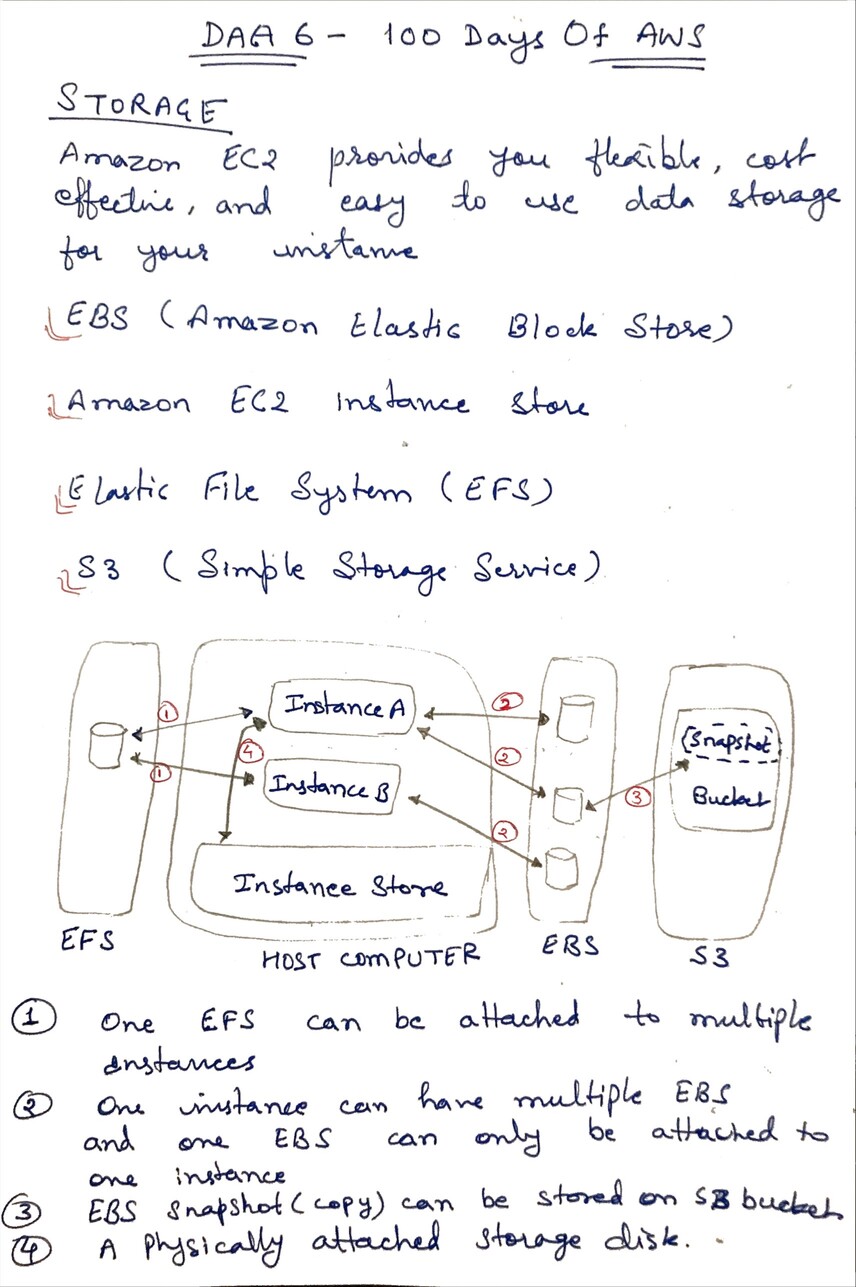 DAY 6 - 100 Days Of AWS
STORAGE
Amazon EC2 provides you flexible, cost
effective, and easy to use data storage
for your instance
EBS (Amazon Elastic Block Store)
Amazon EC2 instance store
Elastic File System (EFS)
S3 (Simple Storage Service)
Instance A
Instance B
Instance Store
(Snapshot)
Bucket
1
1
4
2
2
2
3
EFS
HOST COMPUTER
EBS
S3
1 One EFS can be attached to multiple
instances
2 One instance can have multiple EBS
and one EBS can only be attached to
one instance
3 EBS snapshot (copy) can be stored on S3 bucket
4 A physically attached storage disk.